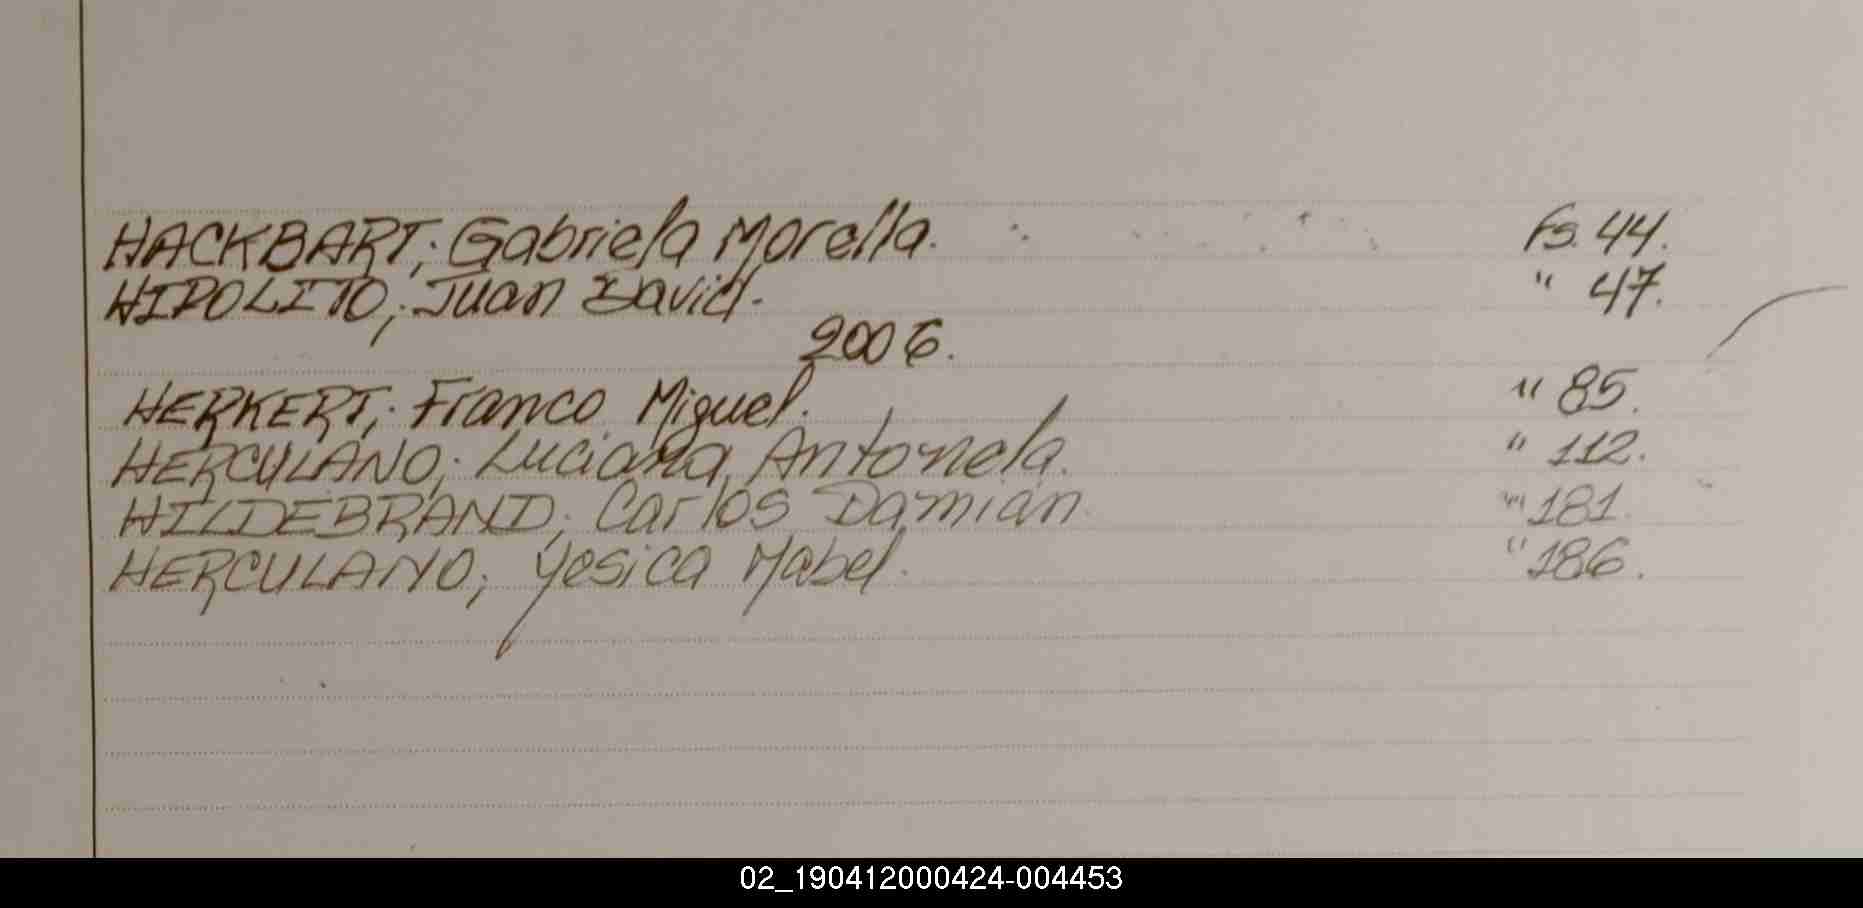 HACKBART; Gabriela Morella. Fs. 44.
HIPOLITO; Juan David. " 47.
2006.
HERKERT; Franco Miguel. " 85.
HERCULANO; Luciana Antonela. " 112.
HILDEBRAND; Carlos Damian. " 181.
HERCULANO; Yesica Mabel. " 186.
02_190412000424-004453